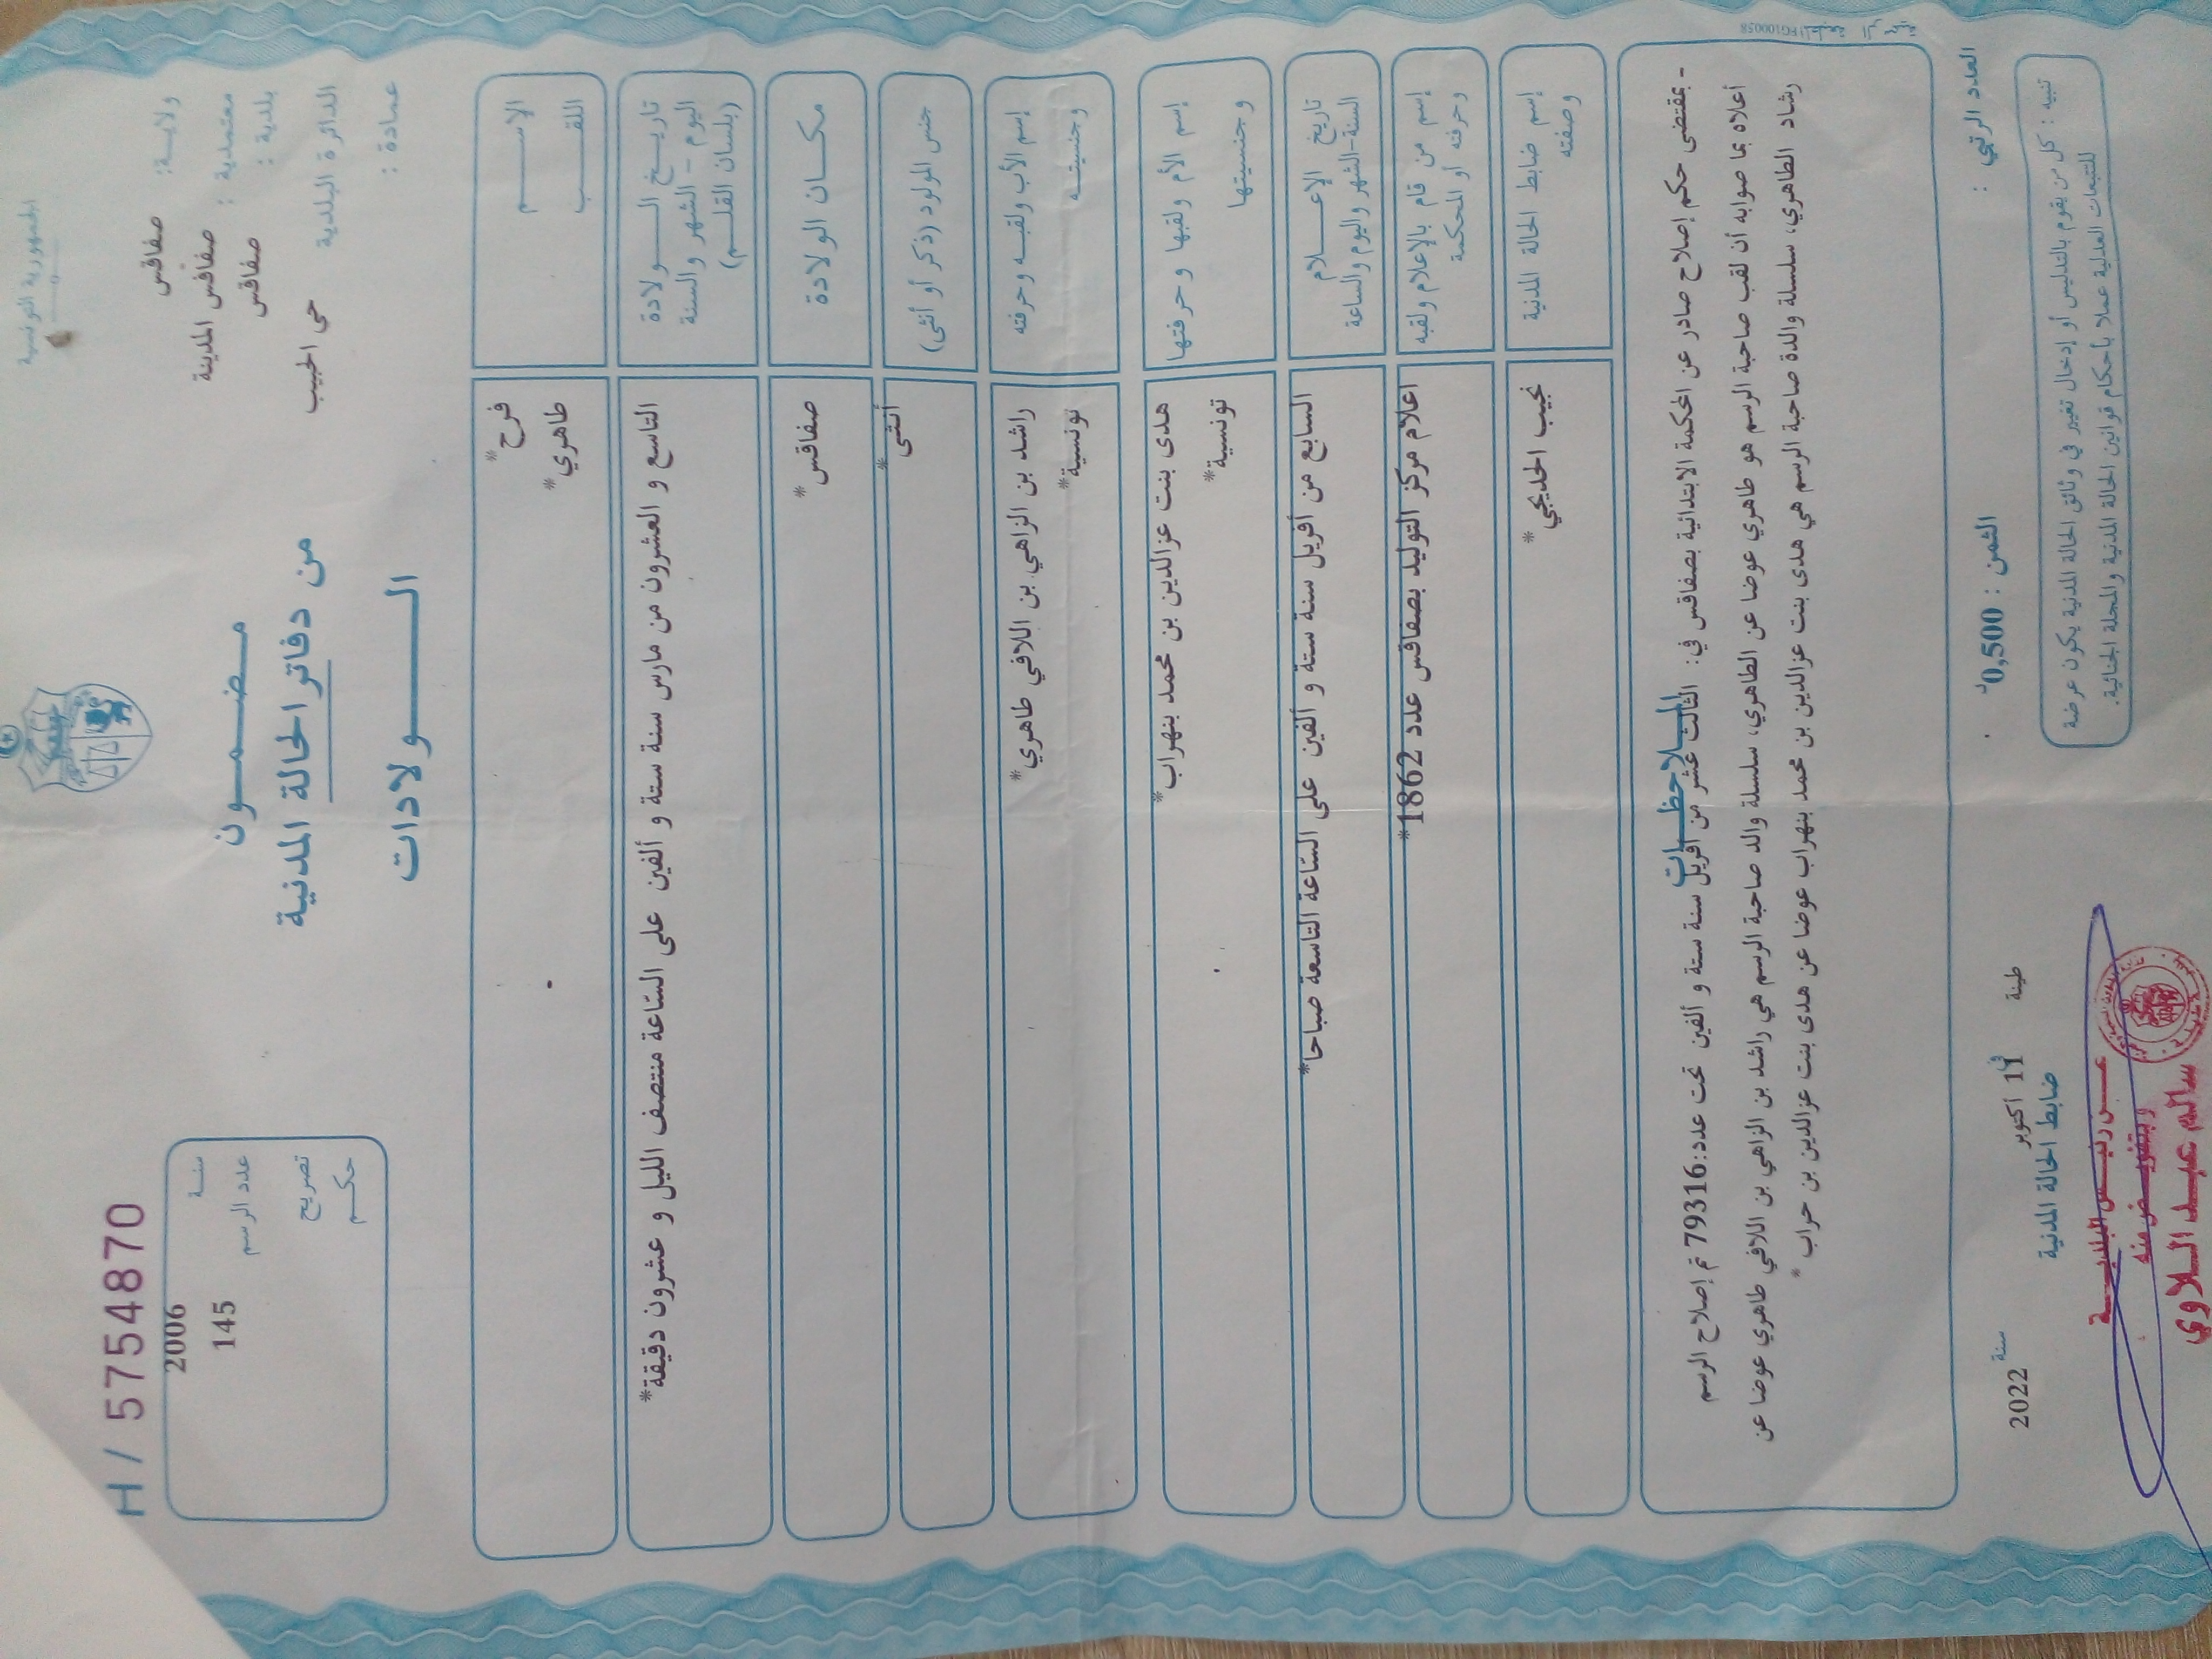 الجمهورية التونسية
H / 5754870
ولاية: صفاقس
معتمدية : صفاقس المدينة
بلدية : صفاقس
الدائرة البلدية حي الحبيب
عمادة :
مضمون
من دفاتر الحالة المدنية
الولادات
سنة 2006
عدد الرسم 145
تصريح
حكم
الاسم فرح*
اللقب طاهري*
تاريخ الولادة
اليوم - الشهر والسنة
(بلسان القلم)
التاسع و العشرون من مارس سنة ستة و ألفين على الساعة منتصف الليل و عشرون دقيقة*
مكان الولادة صفاقس*
جنس المولود (ذكر أو أنثى) أنثى*
إسم الأب ولقبه وحرفته راشد بن الزاهي بن اللافي طاهري*
وجنسيته تونسية*
إسم الأم ولقبها وحرفتها هدى بنت عزالدين بن محمد بنهراب*
وجنسيتها تونسية*
تاريخ الإعلام
السنة-الشهر واليوم والساعة
السابع من أفريل سنة ستة و ألفين على الساعة التاسعة صباحا*
إسم من قام بالإعلام ولقبه
وحرفته أو المحكمة
اعلام مركز التوليد بصفاقس عدد 1862*
إسم ضابط الحالة المدنية
وصفته
نجيب الحديجي*
الملاحظات
- بمقتضى حكم إصلاح صادر عن المحكمة الابتدائية بصفاقس في: الثالث عشر من أفريل سنة ستة و ألفين تحت عدد:79316 تم إصلاح الرسم
أعلاه بما صوابه أن لقب صاحبة الرسم هو طاهري عوضا عن الطاهري، سلسلة والد صاحبة الرسم هي راشد بن الزاهي بن اللافي طاهري عوضا عن
رشاد الطاهري، سلسلة والدة صاحبة الرسم هي هدى بنت عزالدين بن محمد بنهراب عوضا عن هدى بنت عزالدين بن حراب*
العدد الرتبي :
الثمن : 0,500د
طينة في 11 أكتوبر سنة 2022
ضابط الحالة المدنية
تنبيه : كل من يقوم بالتدليس أو إدخال تغيير في وثائق الحالة المدنية يكون عرضة
للتتبعات العدلية عملا بأحكام قوانين الحالة المدنية والمجلة الجنائية.
عن رئيس البلدية
وبتفويض منه
سالم عبد اللاوي